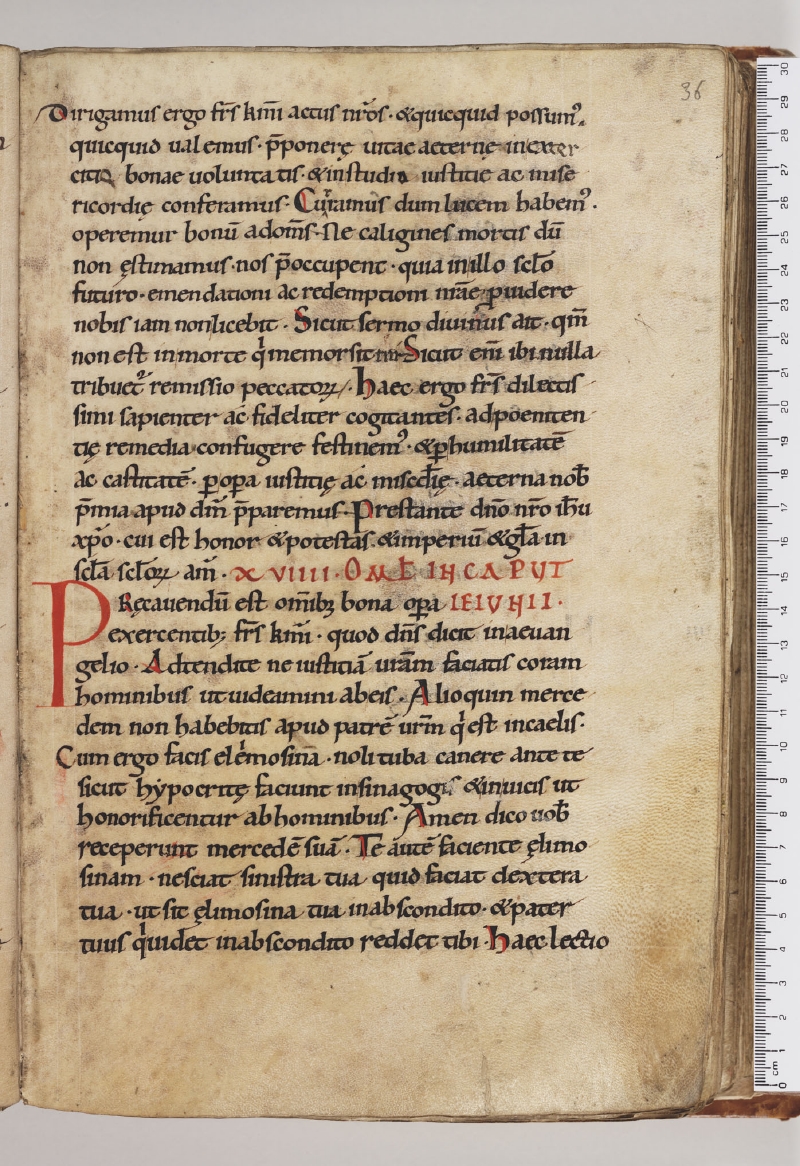 36
Dirigamus ergo fr̄s km̄i actus nr̄os · & quicquid possum᾽,
quicquid ualemus · p̄ponere uitae aeternę in exer
citiū bonae uoluntatis · & in studio iustitię ac mise
ricordię conferamus · Curramus dum lucem habem᾽ ·
operemur bonū ad om̄s · Ne caligines mortis dū
non ęstimamus · nos p̄occupent · quia in illo sclo̅
futuro · emendationi ac redemptioni nr̄ae puidere
nobis iam non licebit · Sicut sermo diuinus ait · qm̄
non est in morte qi memor sit tui · Sicut eni̅ ibi nulla
tribuet᾽ remissio peccatoꝝ · Haec ergo fr̄s dilectis
simi sapienter ac fideliter cogitantes · ad poeniten
tię remedia confugere festinem᾽ · & p humilitatē
ac castitatē · p opa iustitię ac misc̄dię · aeterna nob̄
p̄mia apud dm̄ p̄paremus · Prestante dn̄o nr̄o ih̄u
xp̄o · cui est honor & potestas & imperiū & gl̄a in
scl̄a scl̄oꝝ am̄ · XVIIII · OMEL̄ IN CAPUT
PRęcauendū est omib; bona opa IEIUNII ·
exercentib; fr̄s km̄i · quod dn̄s dicit in aeuan
gelio · Adtendite ne iustitiā urām faciatis coram
hominibus ut uideamini ab eis · Alioquin merce
dem non habebitis apud patrē urm̄ qi est in caelis ·
Cum ergo facis elemosinā · noli tuba canere ante te
sicut hypocritę faciunt in sinagogis & in uicis ut
honorificentur ab hominibus · Amen dico uob̄
receperunt mercedē suā · Te autē faciente ęlimo
sinam · nesciat sinistra tua quid faciat dextera
tua · ut sit ęlimosina tua in abscondito · & pater
tuus qi uidet in abscondito reddet tibi · Haec lectio